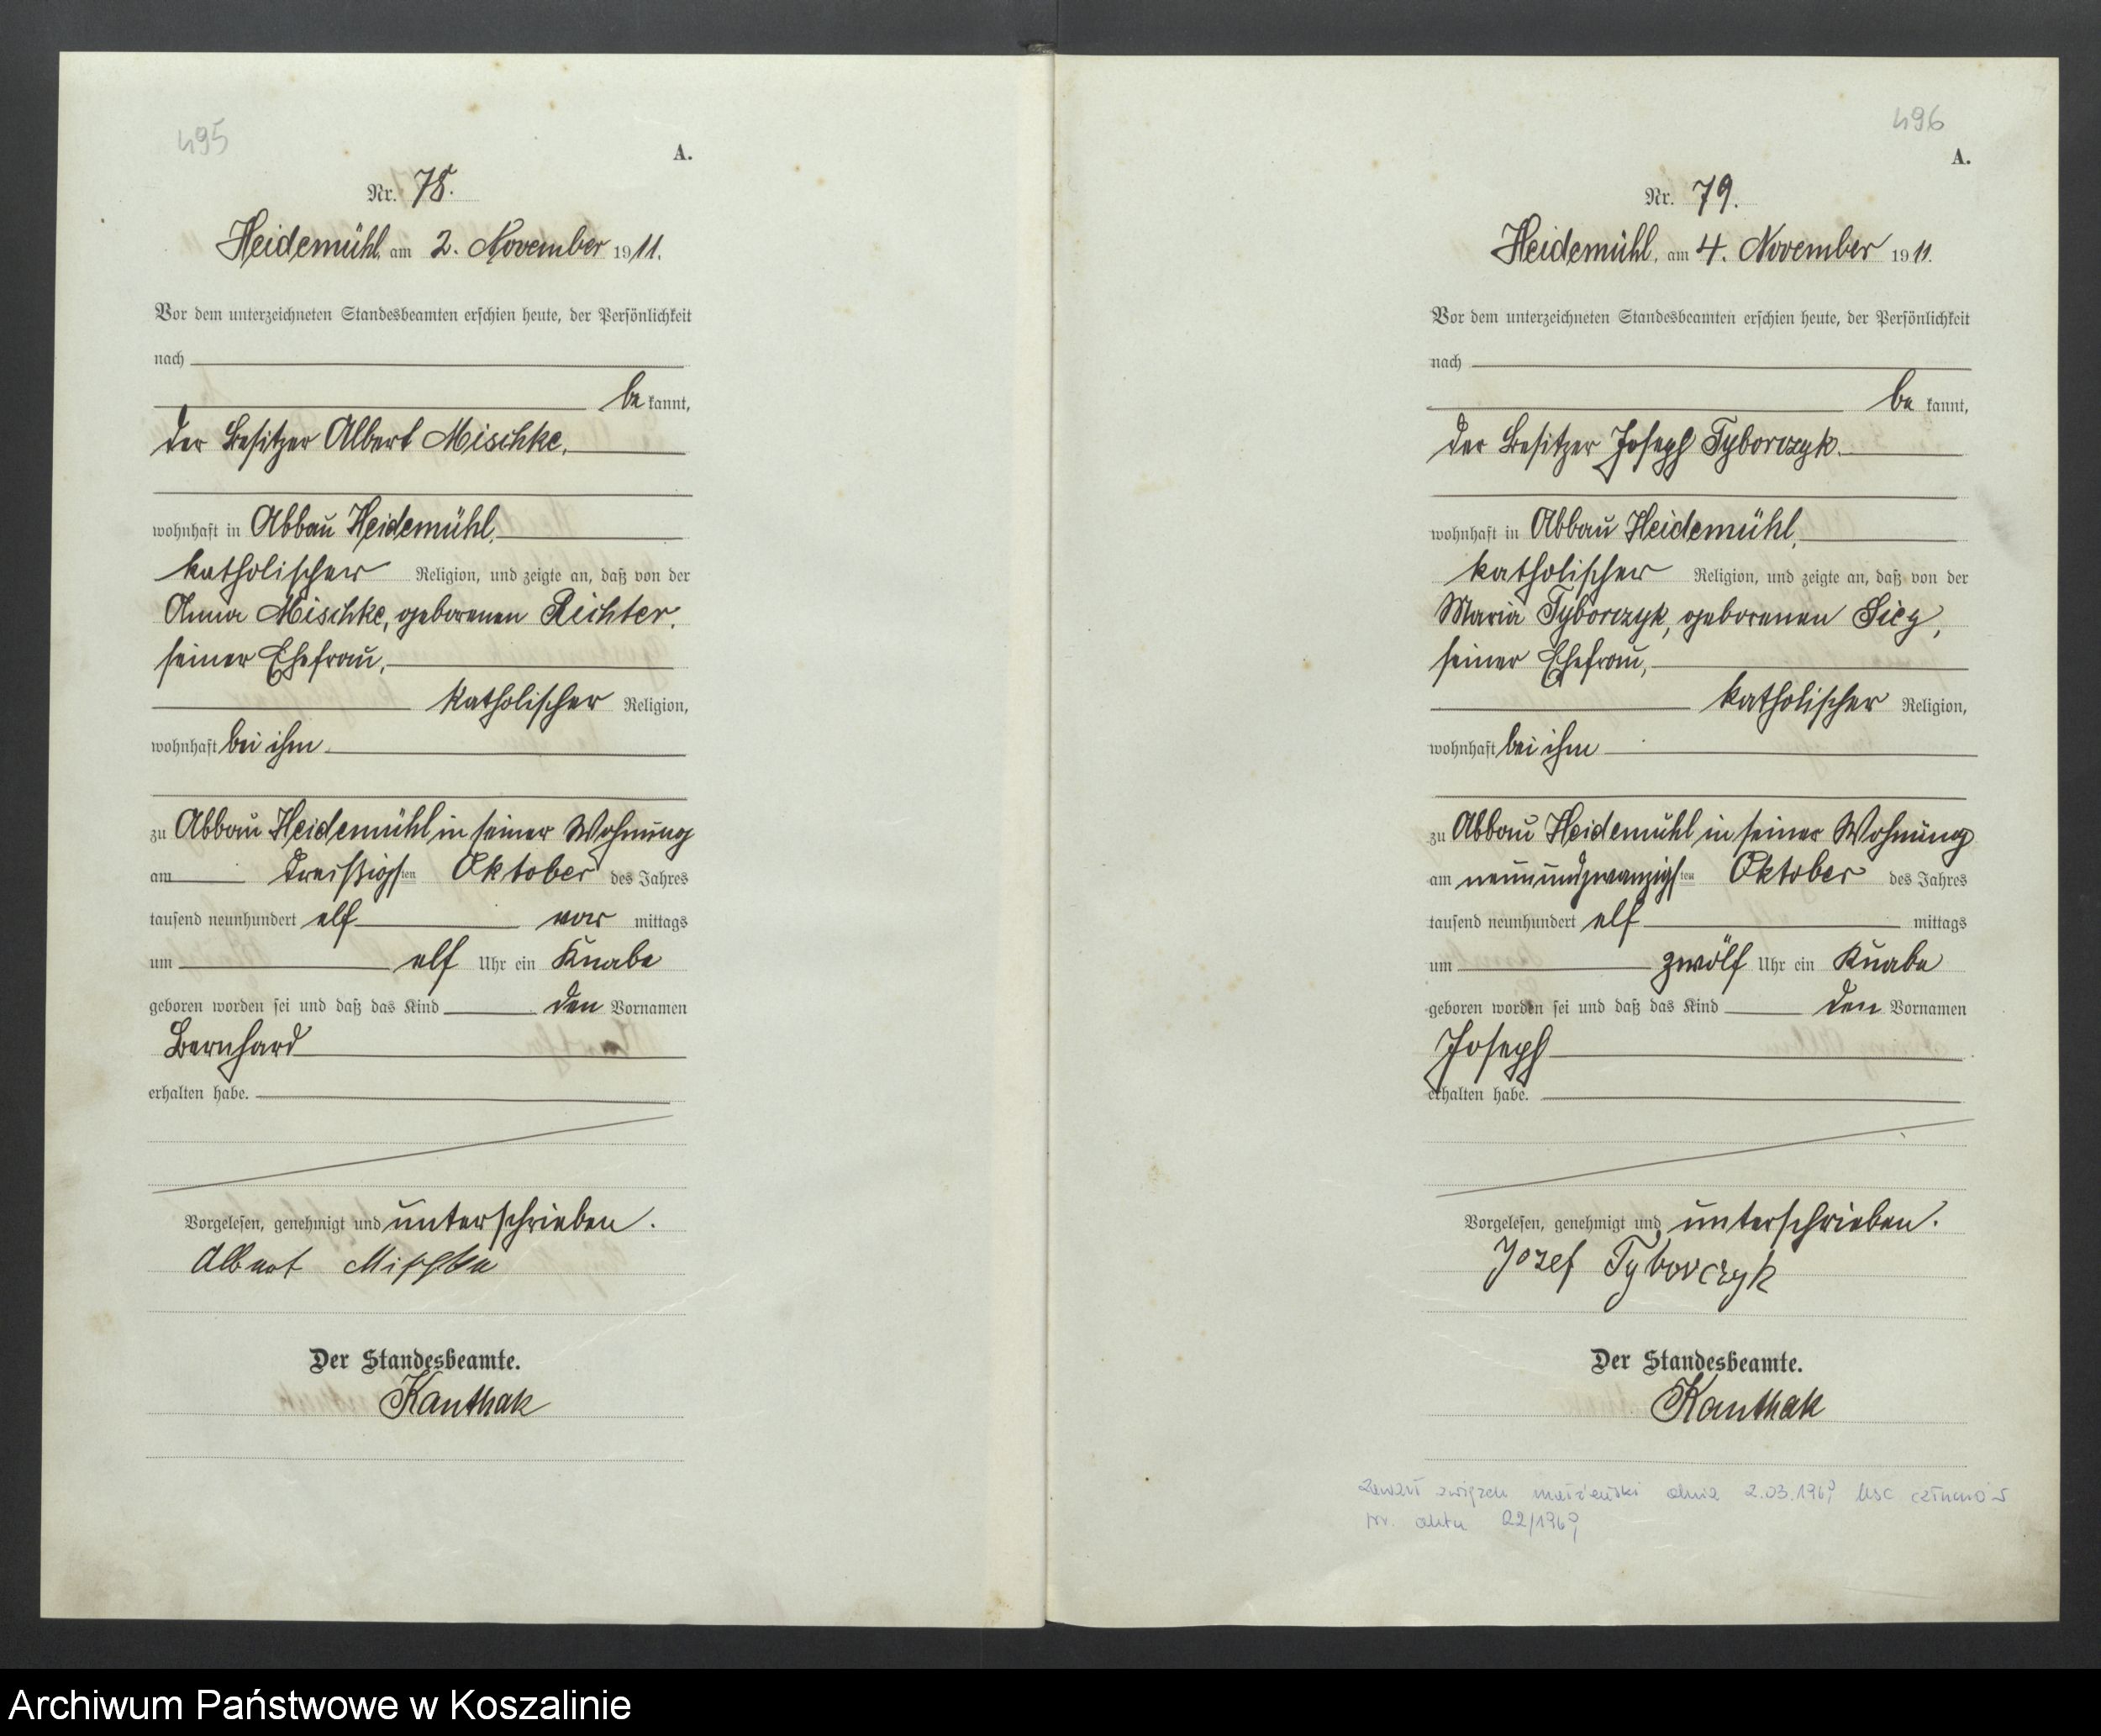 495
A.
Nr. 78.
Heidemühl, am 2. November 1911.
Vor dem unterzeichneten Standesbeamten erschien heute, der Persönlichkeit
nach
be kannt,
der Besitzer Albert Mischke,
wohnhaft in Abbau Heidemühl,
katholischer Religion, und zeigte an, daß von der
Anna Mischke, geborenen Richter,
seiner Ehefrau,
katholischer Religion,
wohnhaft bei ihm
zu Abbau Heidemühl in seiner Wohnung
am dreißigsten Oktober des Jahres
tausend neunhundert elf vor mittags
um elf Uhr ein Knabe
geboren worden sei und daß das Kind den Vornamen
Bernhard
erhalten habe.
Vorgelesen, genehmigt und unterschrieben.
Albert Mischke
Der Standesbeamte.
Kanthak
496
A.
Nr. 79.
Heidemühl, am 4. November 1911.
Vor dem unterzeichneten Standesbeamten erschien heute, der Persönlichkeit
nach
be kannt,
der Besitzer Joseph Tyborczyk
wohnhaft in Abbau Heidemühl,
katholischer Religion, und zeigte an, daß von der
Maria Tyborczyk, geborenen Sieg,
seiner Ehefrau,
katholischer Religion,
wohnhaft bei ihm
zu Abbau Heidemühl in seiner Wohnung
am neunundzwanzigsten Oktober des Jahres
tausend neunhundert elf mittags
um zwölf Uhr ein Knabe
geboren worden sei und daß das Kind den Vornamen
Joseph
erhalten habe.
Vorgelesen, genehmigt und unterschrieben.
Jozef Tyborczyk
Der Standesbeamte.
Kanthak
Zawarł związek małżeński dnia 2.03.1969 USC Człuchów
nr. aktu 22/1969
Archiwum Państwowe w Koszalinie